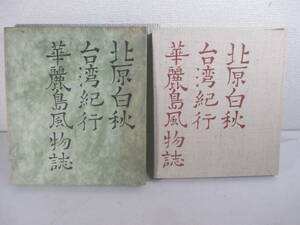 北原白秋
台湾紀行
華麗島風物誌
北原白秋
台湾紀行
華麗島風物誌